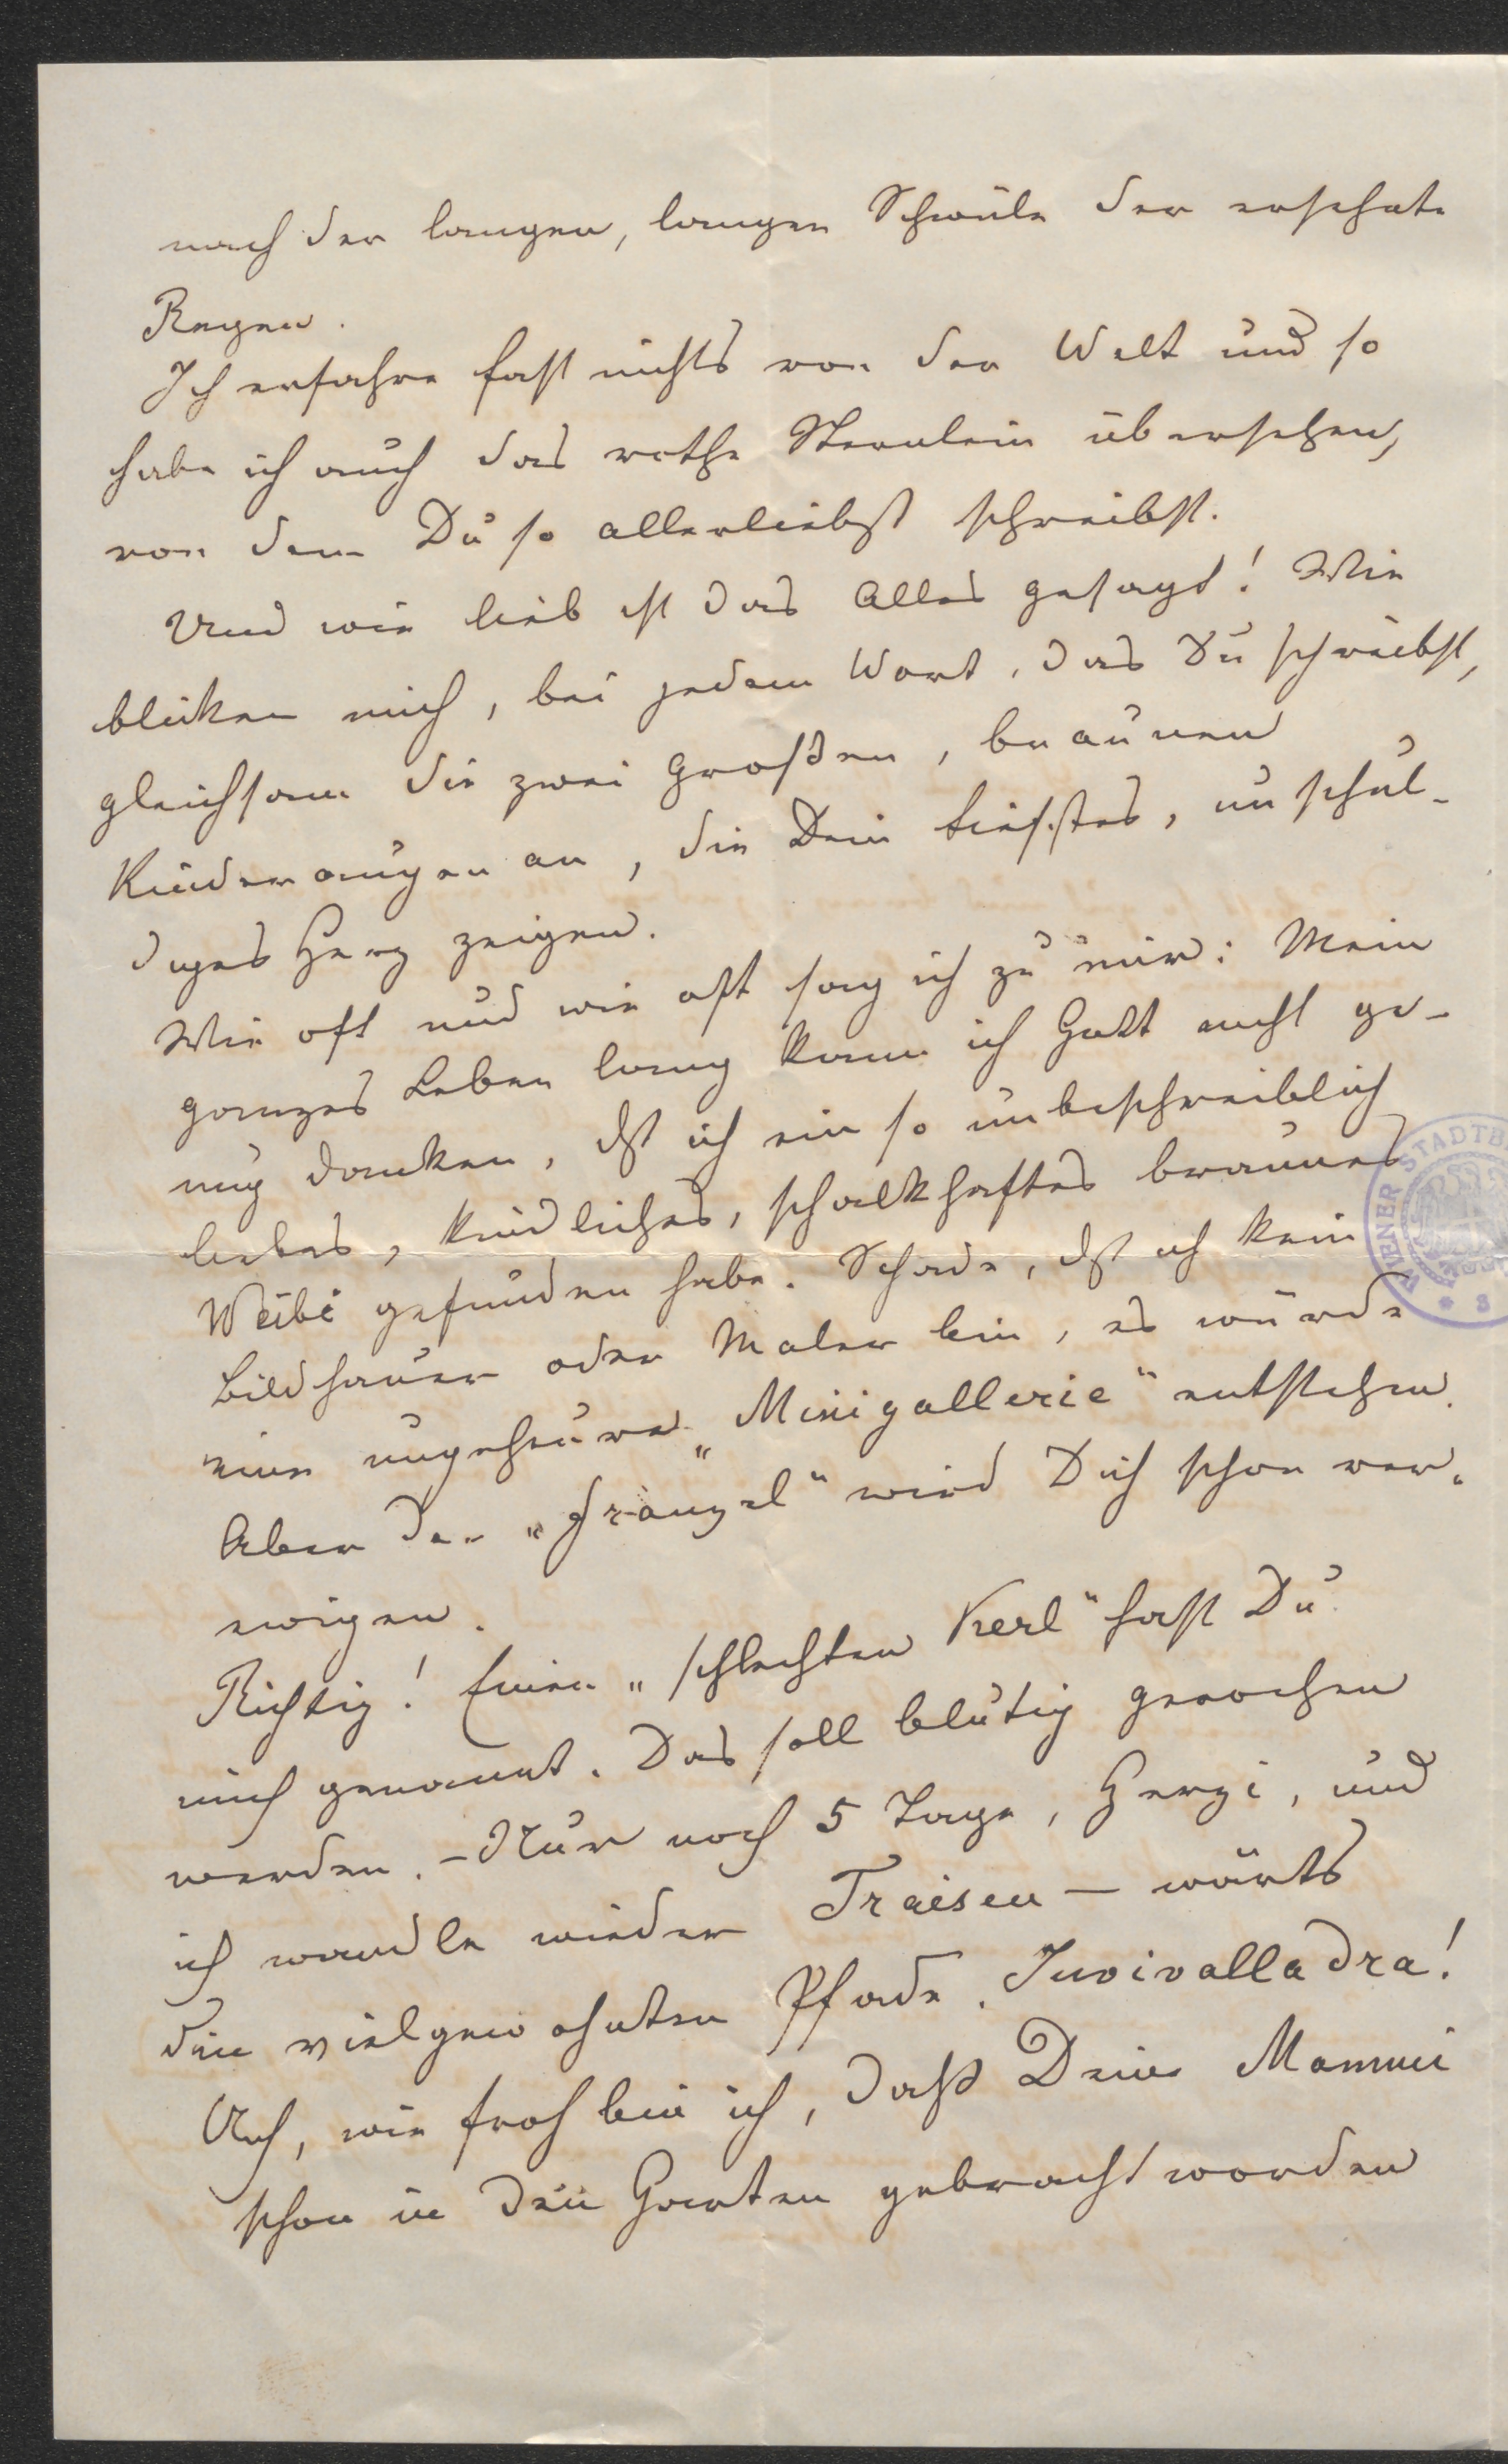 nach der langen, langen Schwüle der ersehnte
Regen.
Ich erfahre fast nichts von der Welt und so
habe ich auch das rothe Sternlein übersehen,
von dem Du so allerliebst schreibst.
Und wie lieb ist das Alles gesagt! Wie
blicken mich, bei jedem Wort, das Du schreibst,
gleichsam die zwei großen, braunen
Kinderaugen an, die Dein tiefstes, unschul-
diges Herz zeigen.
Wie oft und wie oft sag ich zu mir: Mein
ganzes Leben lang kann ich Gott nicht ge-
nug danken, dß ich ein so unbeschreiblich
liebes, kindliches, schalkhaftes braunes
Weibi gefunden habe. Schade, dß ich kein
Bildhauer oder Maler bin, es würde
eine ungeheure „Minigallerie" entstehen.
Aber der „Franzel" wird Dich schon ver-
ewigen.
Richtig! Einen „schlechten Kerl" hast Du
mich genannt. Das soll blutig gerochen
werden. – Nur noch 5 Tage, Herzi, und
ich wandle wieder Traisen – wärts
die vielgewohnten Pfade. Juvivalladra!
Ach, wie froh bin ich, daß Deine Mammi
schon in den Garten gebracht worden
WIENER STADTB